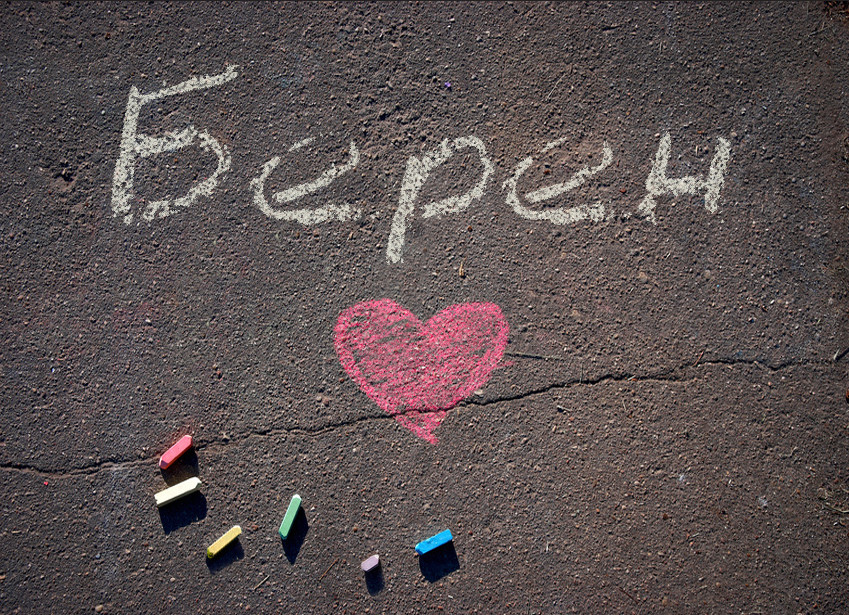 Берен